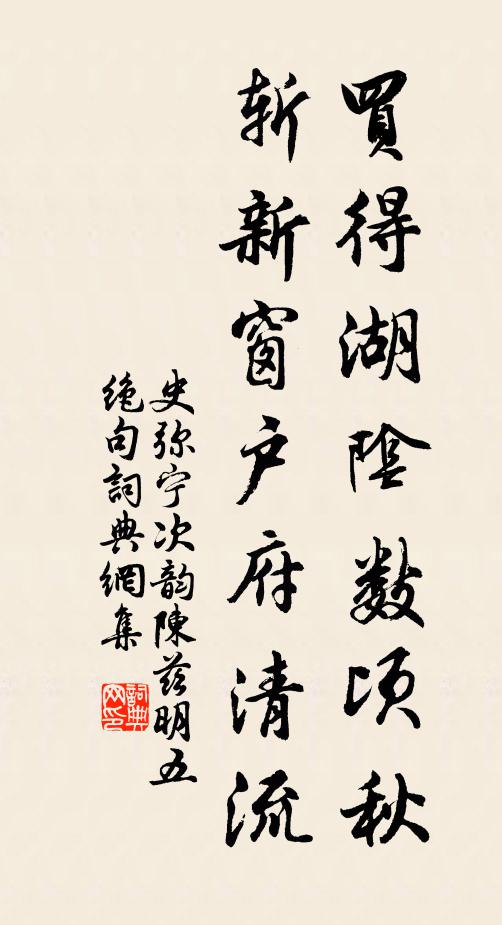 買得湖陰數頃秋
斬新窗户府清流
史弥宁次韵陳茲明五
絶句詞典網集
詞典网印